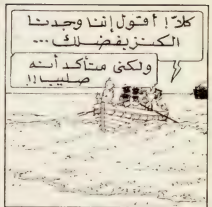 كلا! أقول إننا وجدنا
الكنز بفضلك...
ولكني متأكد أنه
صليب!!